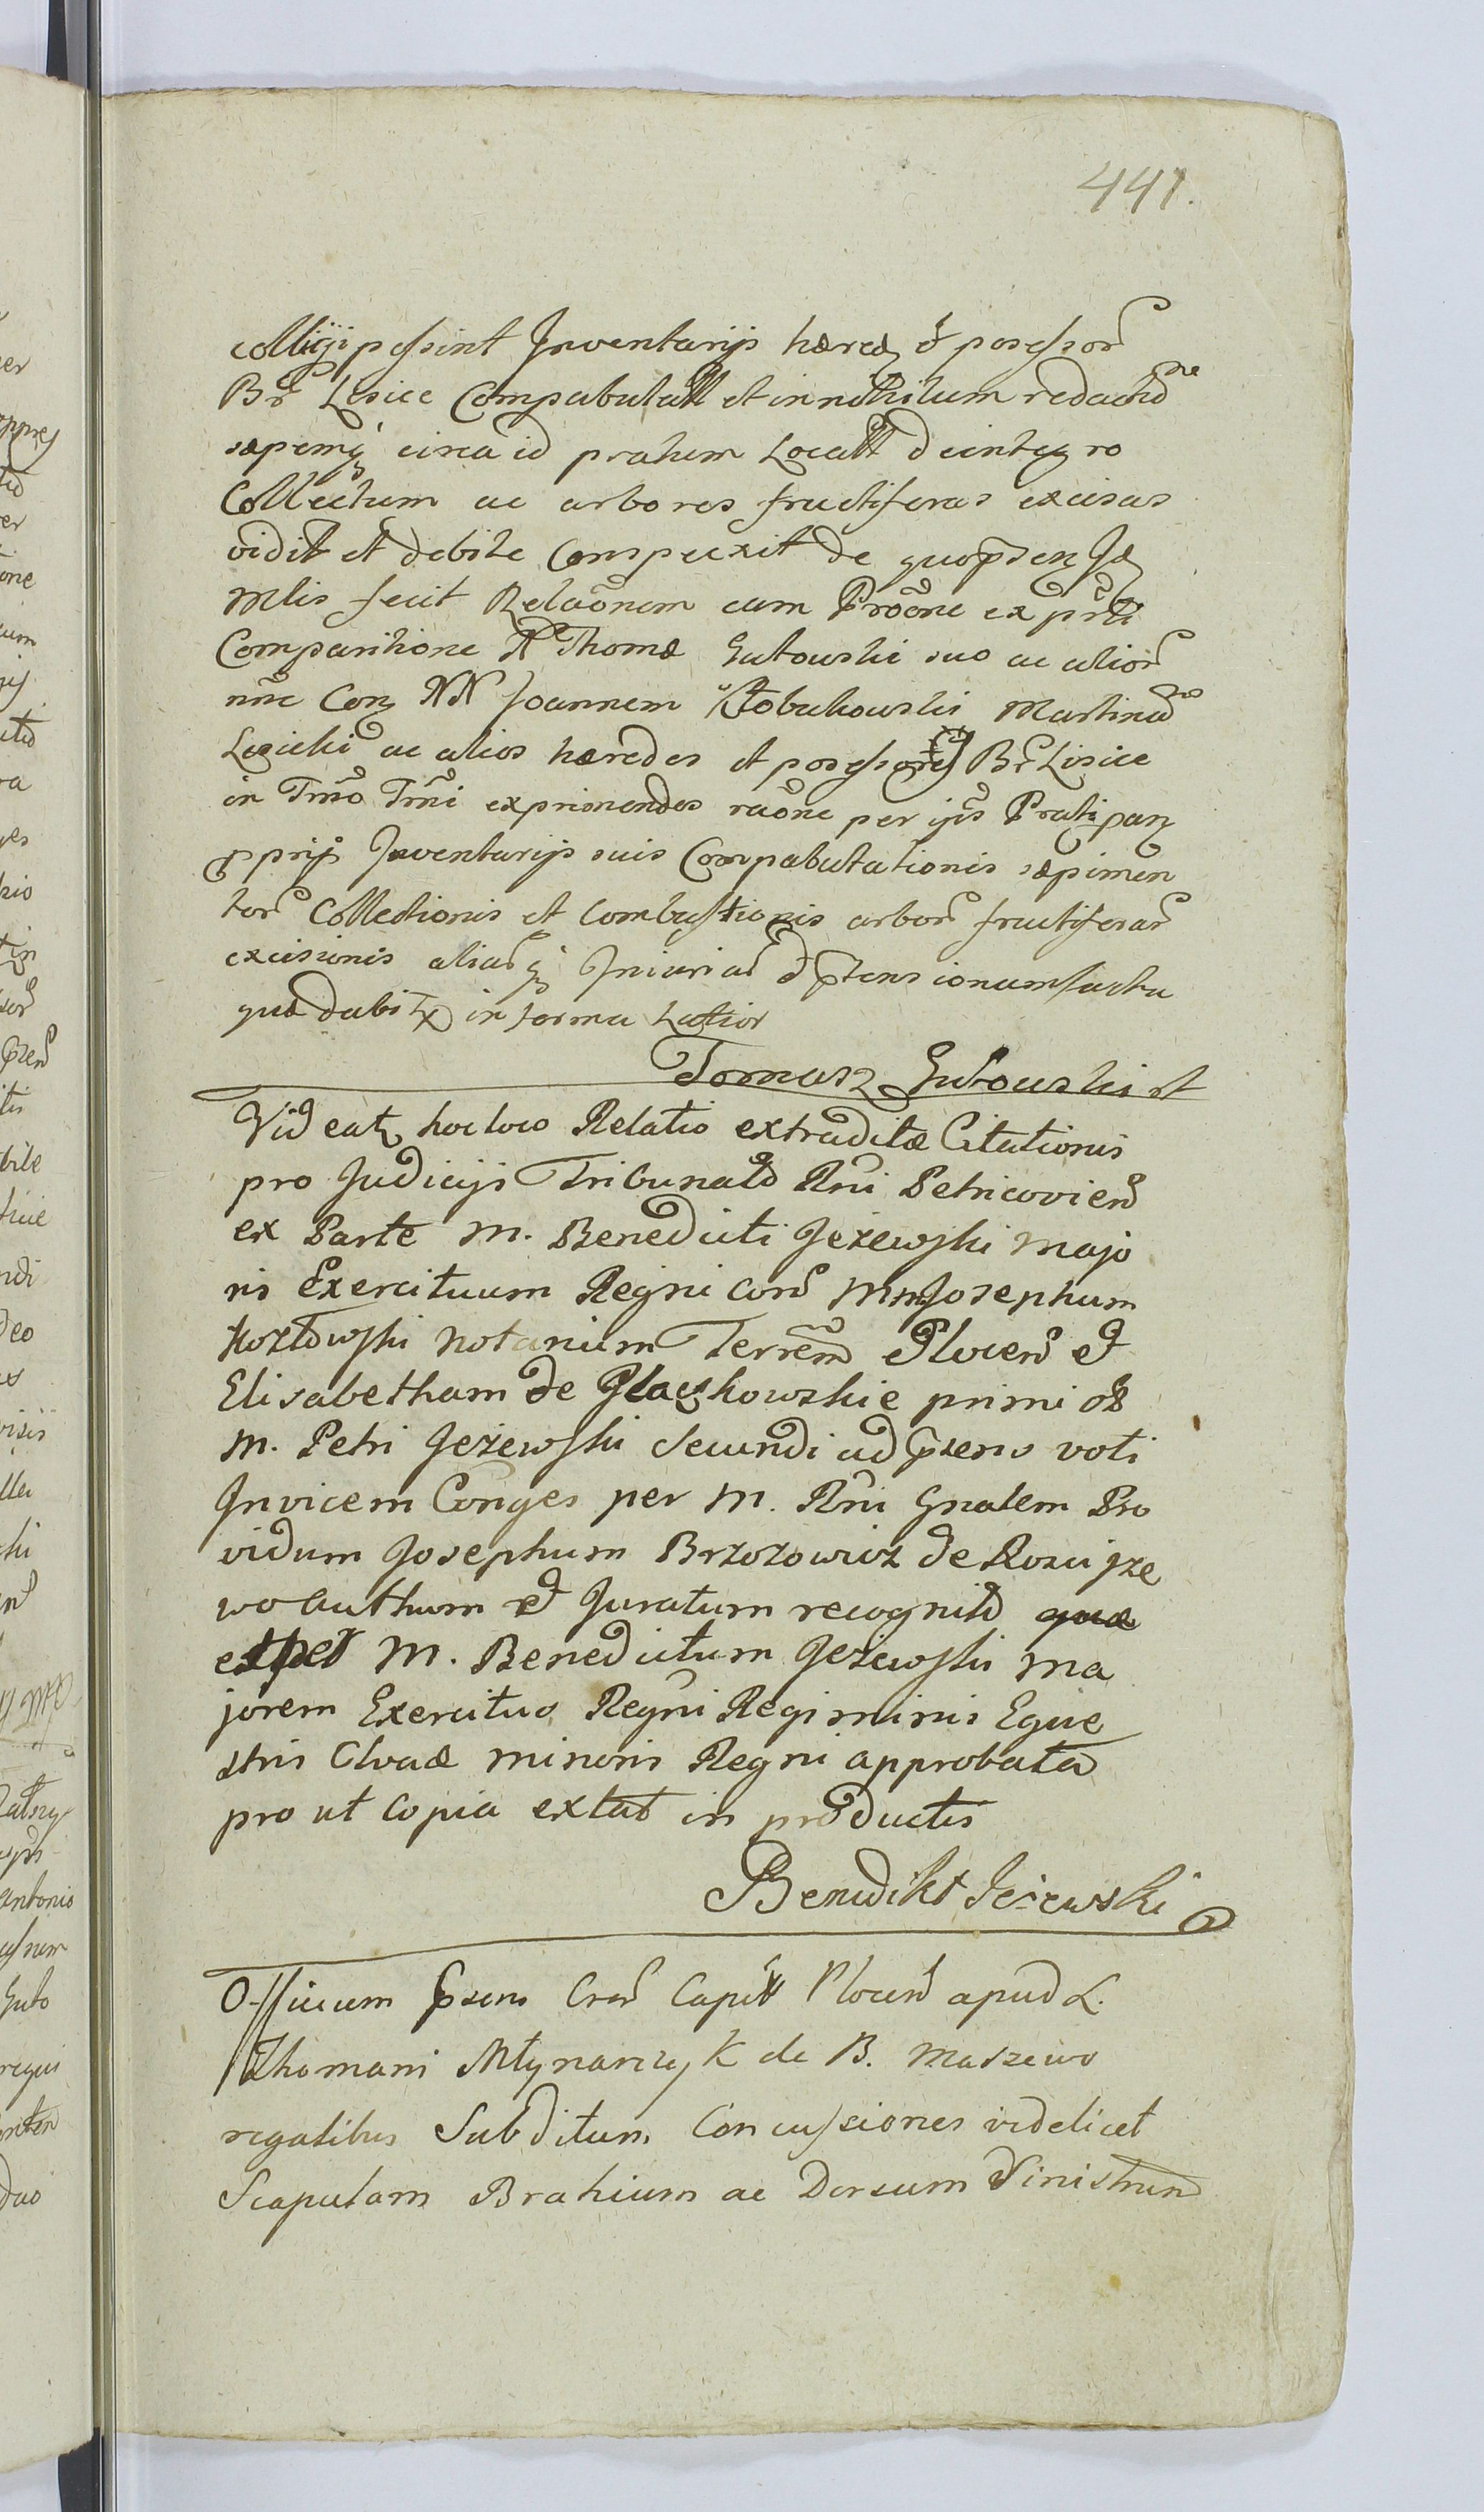 441.
colligi possint Inventarijs hæred et possessor
Br Lisice Compabulatt et in nihilum redactio
sæpemq circa id pratum Locatt de integro
Collectum ac arbores fructiferas excisas
vidit et debite Conspexit de quo præsen Id
Mlis fecit Relaonem cum Proone ex prti
Comparitione N Thomæ Gutowski suo ac alior
nne Con NN Joannem Martinum
Lisicki ac alios hæredes et possessores Br Lisice
in Tmo Tmi exprimendos raone per ijs Prati pan
prijs Inventarijs suis Compabulationis sæpimen
tor Collectionis et Combustionis arbor fructiferar
excisionis aliarq Iniuriar et præten ionum facta
quæ dabit in forma Latior
Tomasz Gutowski
Videat hoc loco Relatio extraditæ Citationis
pro Judicijs Tribunal Rni Petricovien
ex Parte M. Benedicti Jeżewski Majo
ris Exercituum Regni Cor MM Josephum
Kozłowski Notarium Terrem Plocen et
Elisabetham de primi et
M. Petri Jeżewski Secundi ad præsens voti
Invicem Conges per M. Rni Gnalem Pro
vidum Josephum Brzozowicz de Rosciże
wo Authum et Juratum recognit quæ
et per M. Benedictum Jeżewski Ma
jorem Exercitus Regni Regiminis Eque
stris Regni approbata
pro ut Copia extat in productis
Benedikt Jeżewski
Officium præsens Cas Capit Plocen apud L.
Thomam Młynarczyk de B. Maszewo
regalibus Subditum Concussiones videlicet
Scapulam Brahium ac Dorsum Sinistrum